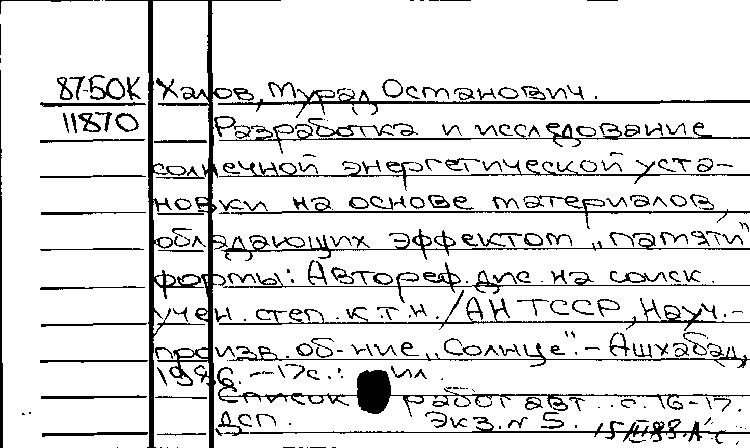 87-50К Халов, Мурад Останович.
11870 Разработка и исследование
солнечной энергетической уста-
новки на основе материалов,
обладающих эффектом „памяти"
формы: Автореф. дис. на соиск.
учен. степ. к.т.н. / АН ТССР, Науч.-
произв. об-ние „Солнце". - Ашхабад,
1986. - 17с.: ил.
Список работ авт.: с. 16-17.
ДСП. Экз. N 5.